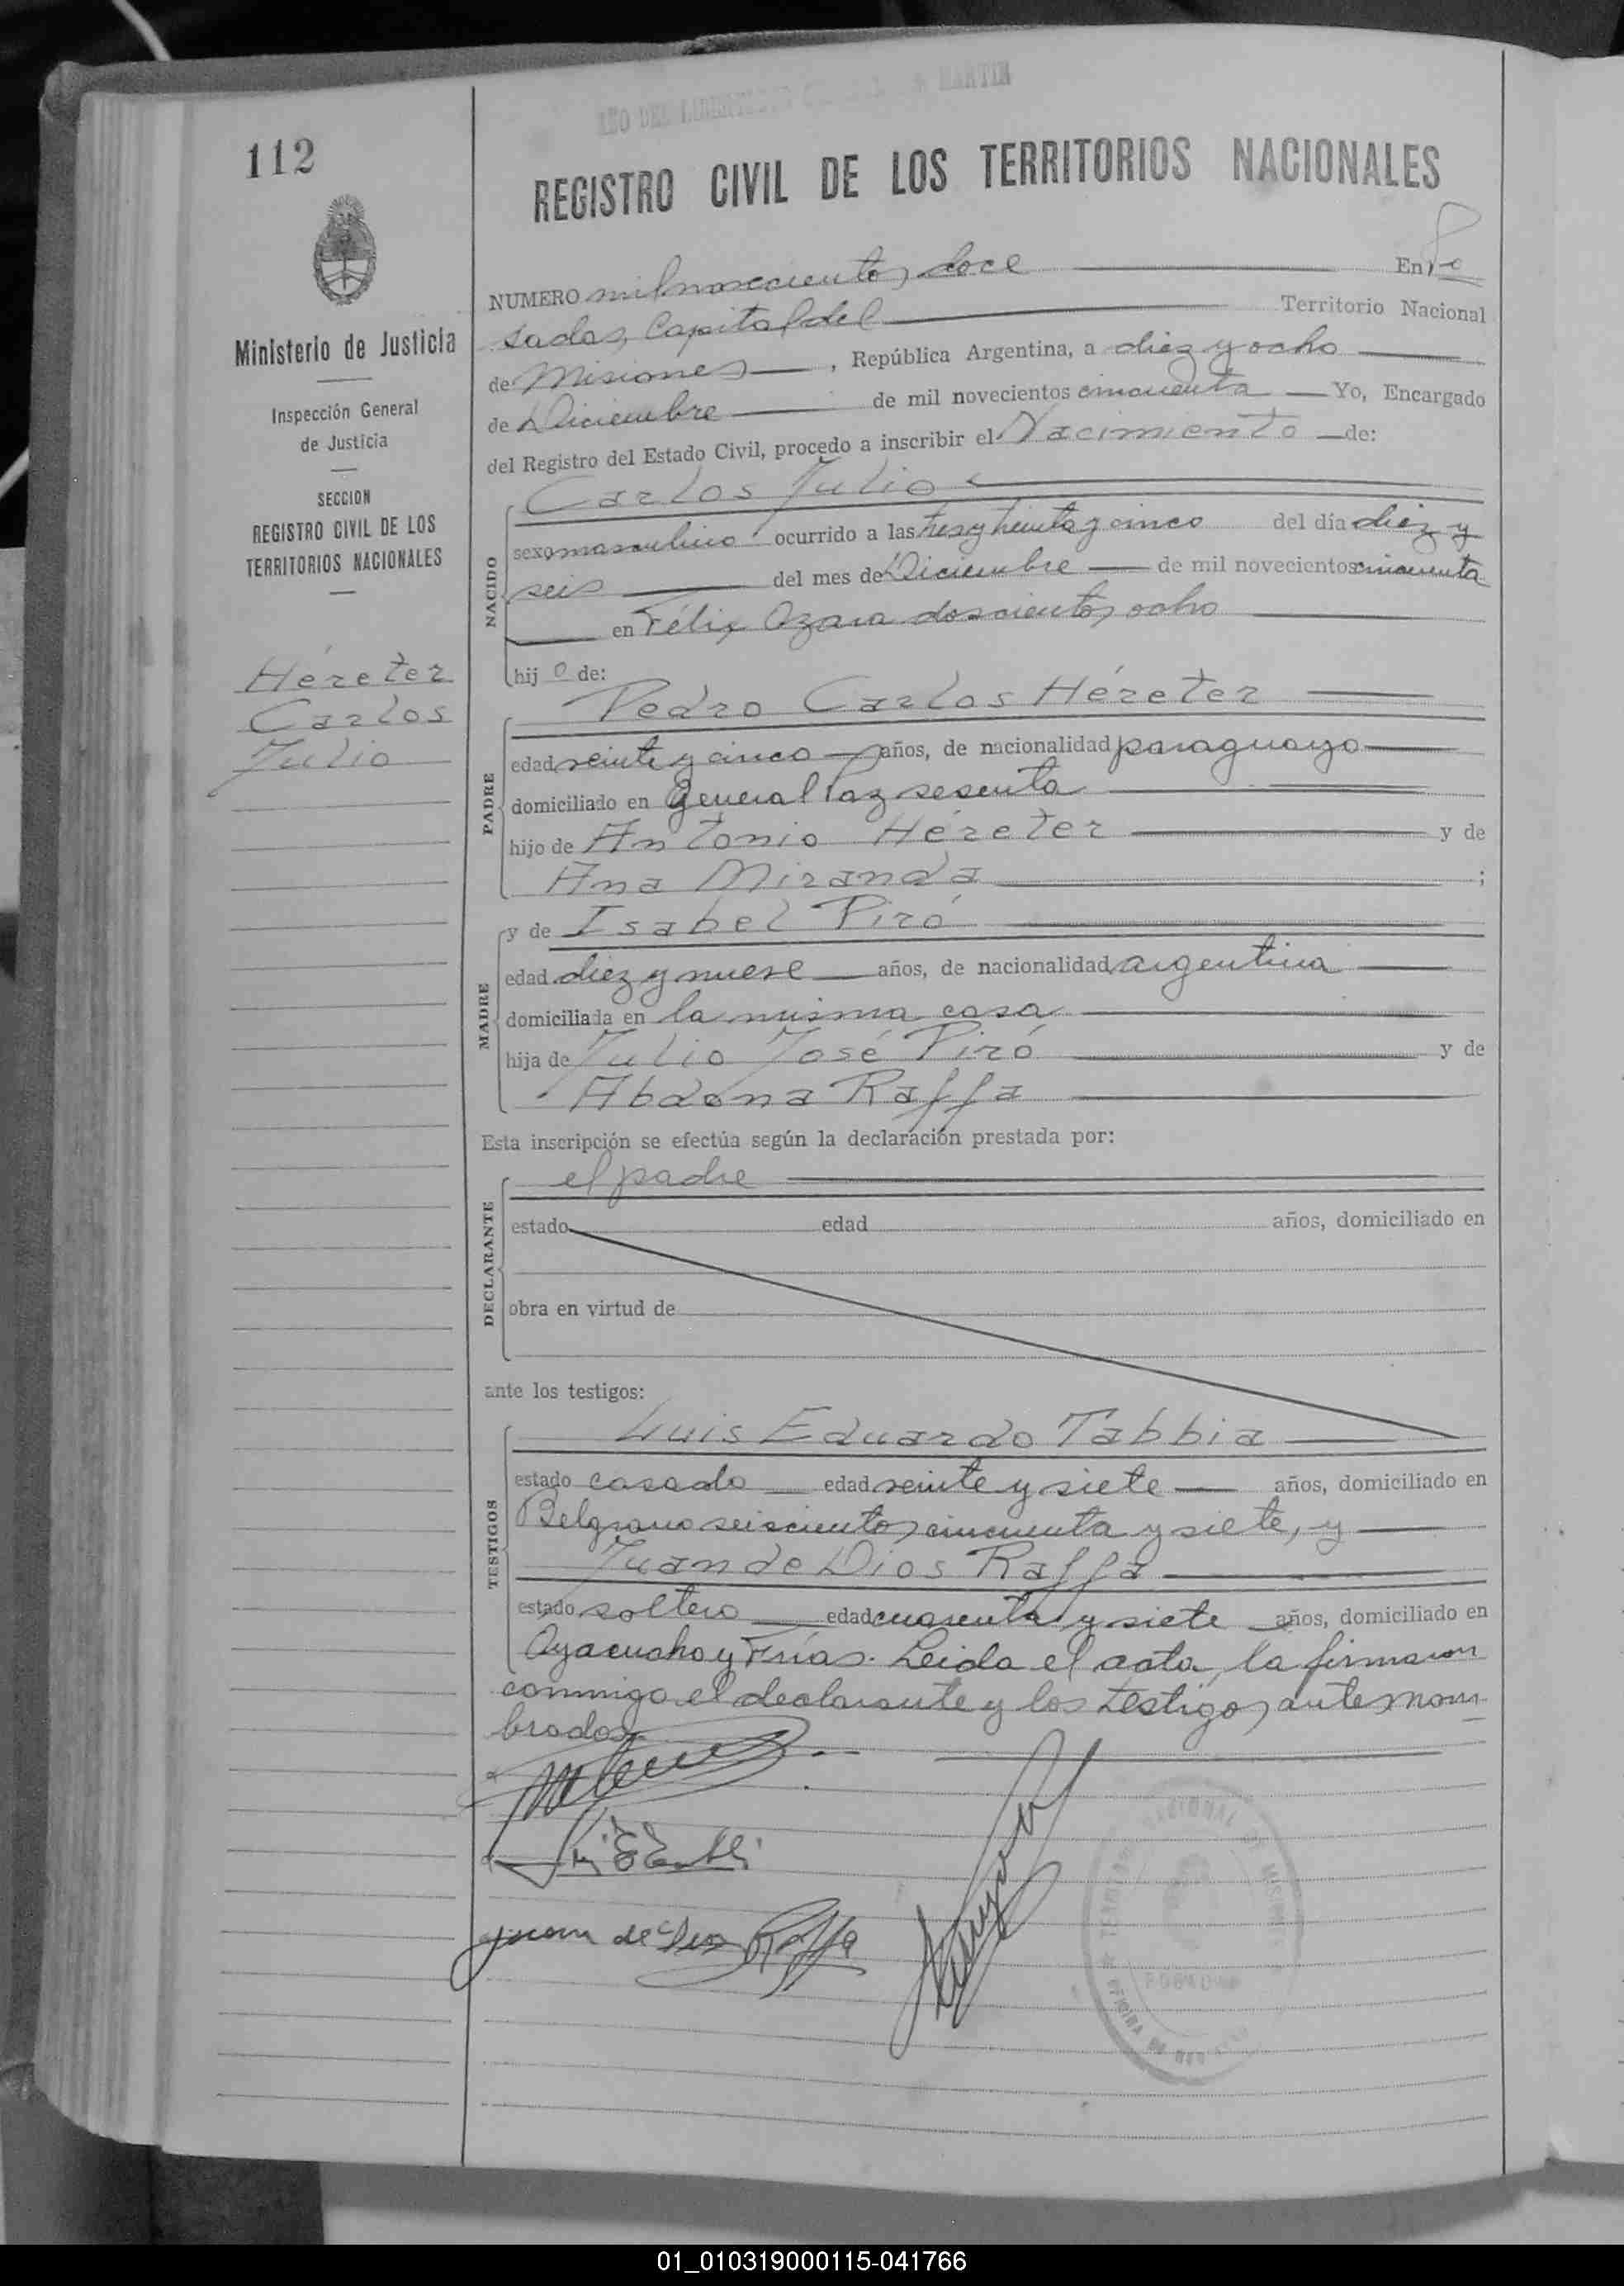 AÑO DEL LIBERTADOR GENERAL SAN MARTIN
112
REGISTRO CIVIL DE LOS TERRITORIOS NACIONALES
Ministerio de Justicia
Inspección General
de Justicia
SECCION
REGISTRO CIVIL DE LOS
TERRITORIOS NACIONALES
Héreter
Carlos
Julio
NUMERO mil novecientos doce En Po
sadas, Capital del Territorio Nacional
de Misiones, República Argentina, a diez y ocho
de Diciembre de mil novecientos cincuenta Yo, Encargado
del Registro del Estado Civil, procedo a inscribir el Nacimiento de:
NACIDO
Carlos Julio
sexo masculino ocurrido a las tres y treinta y cinco del día diez y
seis del mes de Diciembre de mil novecientos cincuenta
en Félix Azara doscientos ocho
hij o de:
PADRE
Pedro Carlos Héreter
edad veinte y cinco años, de nacionalidad paraguayo
domiciliado en General Paz sesenta
hijo de Antonio Héreter y de
Ana Miranda ;
MADRE
y de Isabel Piró
edad diez y nueve años, de nacionalidad argentina
domiciliada en la misma casa
hija de Julio José Piró y de
Abdona Raffa
Esta inscripción se efectúa según la declaración prestada por:
DECLARANTE
el padre
estado edad años, domiciliado en
obra en virtud de
ante los testigos:
TESTIGOS
Luis Eduardo Tabbia
estado casado edad veinte y siete años, domiciliado en
Belgrano seiscientos cincuenta y siete, y
Juan de Dios Raffa
estado soltero edad cuarenta y siete años, domiciliado en
Ayacucho y Frías. Leida el acta, la firmaron
conmigo el declarante y los testigos antes nom
brados.
Juan de Dios Raffa
POSADAS
01_010319000115-041766